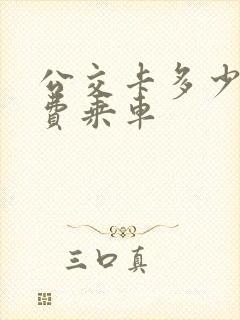 公交卡多少
费乘车
三口真